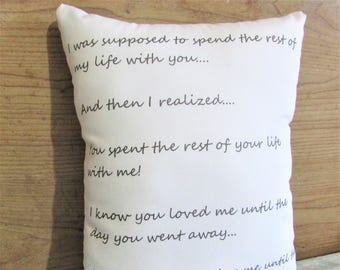 I was supposed to spend the rest of
my life with you...
And then I realized....
You spent the rest of your life
with me!
I know you loved me until the
day you went away...
until the